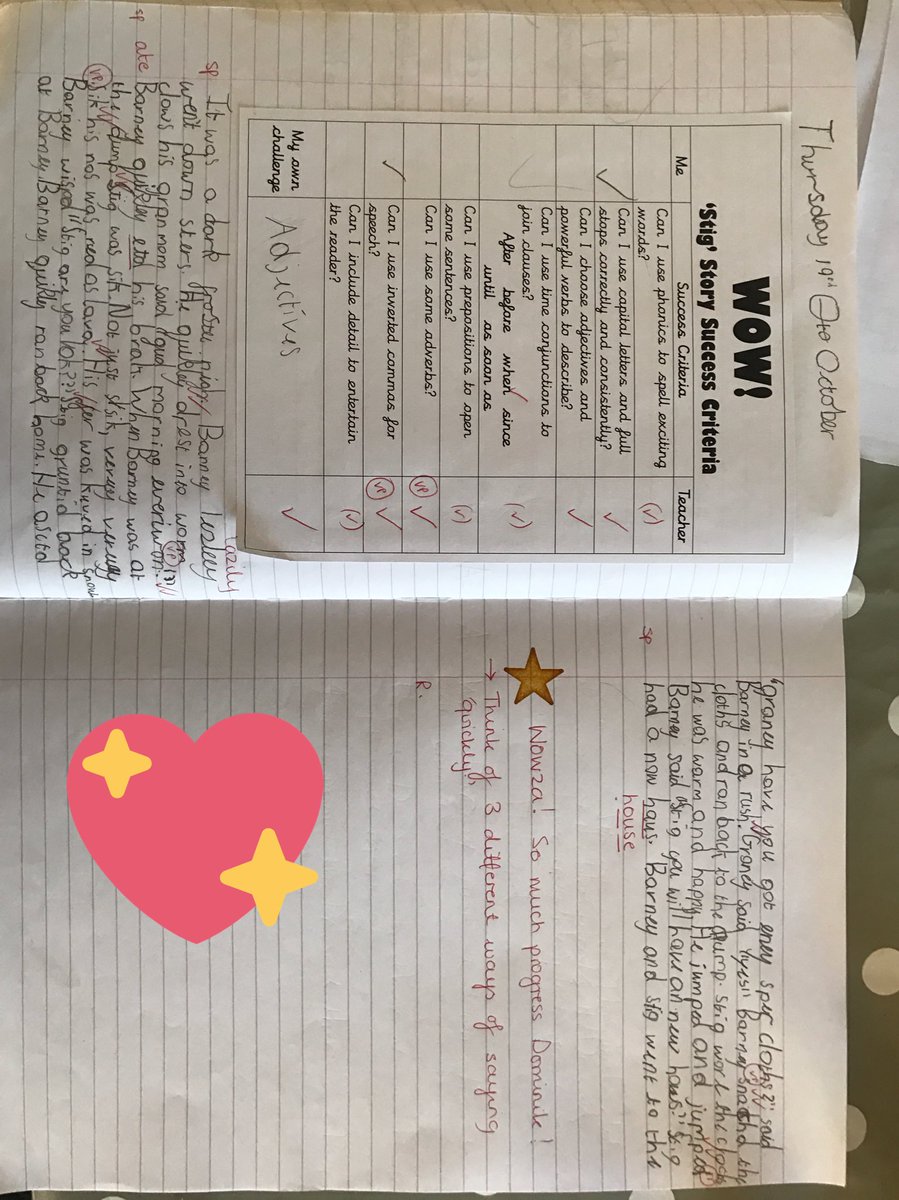 Thursday 19th October
WOW!
'Stig' Story Success Criteria
Me Success Criteria Teacher
Can I use phonics to spell exciting
words? (✓)
✓ Can I use capital letters and full
stops correctly and consistently? ✓
Can I choose adjectives and
powerful verbs to describe? ✓
Can I use time conjunctions to
join clauses?
After before when since
until as soon as (✓)
Can I use prepositions to open
some sentences? (✓)
Can I use some adverbs? VP ✓
✓ Can I use inverted commas for
speech? VP ✓
Can I include detail to entertain
the reader? (✓)
My own
challenge Adjectives ✓
lazily
sp It was a dark Barney
went down sters. He quikley drest into worm
clows his granmem said "gud morning everiwon."
sp ate Barney quikley etd his brath. When Barney was at
the dump stig was sik. Not just sik, verey verey
sik his nos was red as lava. His was in snow
Barney wisped "stig are you ok??" Stig gruntid back
at Barney. Barney quikly ran back home. He asctd
"graney have you got eney sper cloths?" said
Barney in a rush. Graney said "yyes" Barney the
cloths and ran back to the dump. stig the
he was warm and happy. He jumped and jumped
Barney said "stig you will have an new haus." stig
sp had a now haus. Barney and stig went to the
house
Wowza! So much progress Dominik!
→ Think of 3 different ways of saying
'quickly'.
R.